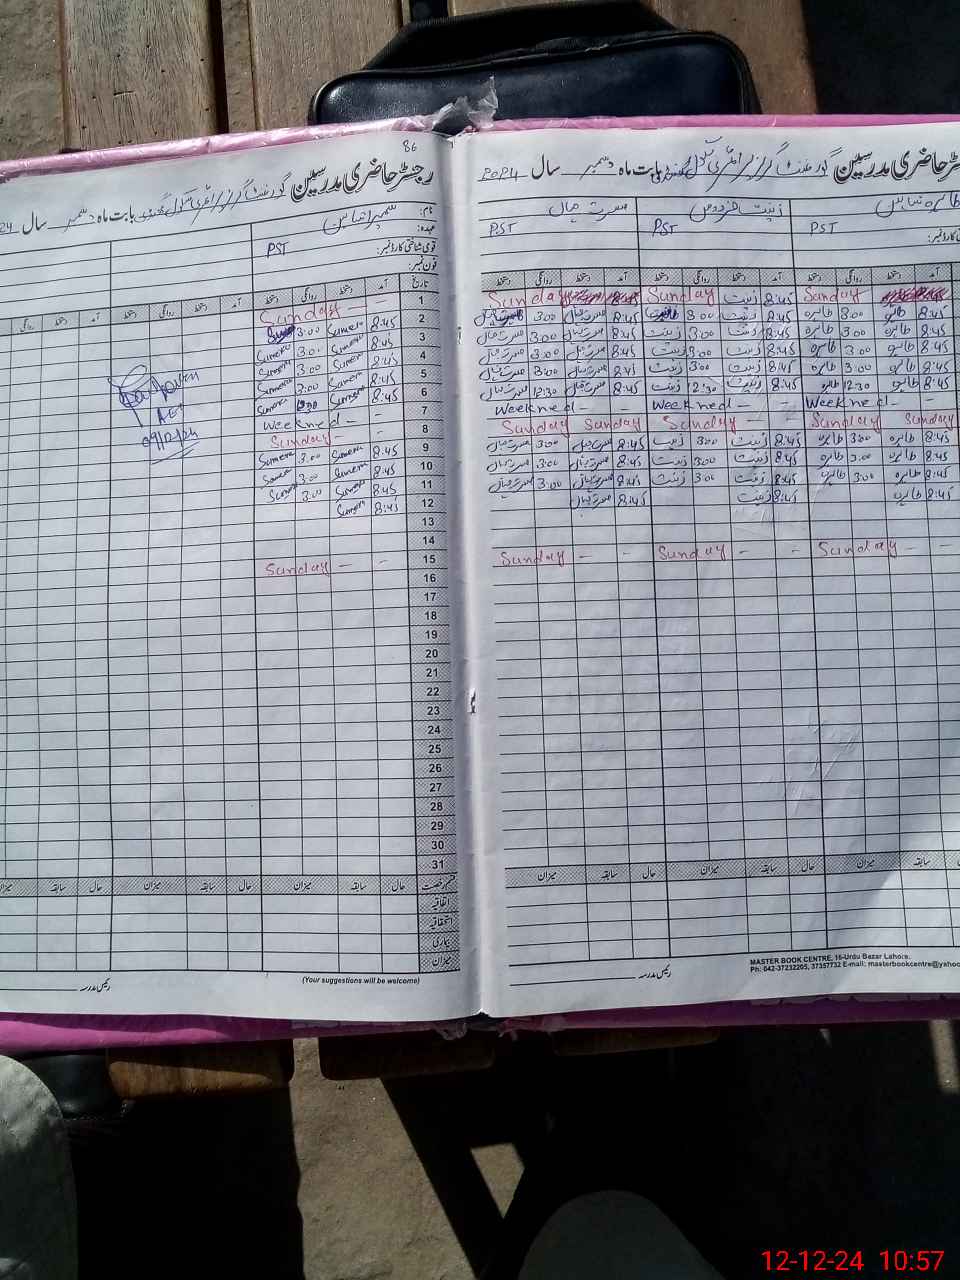 86
رجسٹر حاضری مدرسین گورنمنٹ گرلز پرائمری سکول بابت ماہ دسمبر سال 24
نام:
عہدہ: PST
قومی شناختی کارڈ نمبر:
فون نمبر:
تاریخ آمد دستخط روانگی دستخط آمد دستخط روانگی دستخط آمد دستخط روانگی
1 Sunday - -
2 8:45 Sumera 3:00
3 8:45 Sumera 3:00 Sumera
4 8:45 Sumera 3:00 Sumera
5 8:45 Sumera 3:00 Sumera
6 8:45 Sumera Sumera
7 Weekned - -
8 Sunday - -
9 8:45 Sumera 3:00 Sumera
10 8:45 Sumera 3:00 Sumera
11 8:45 Sumera 3:00 Sumera
12 8:45 Sumera
13
14
15 Sunday - -
16
17
18
19
20
21
22
23
24
25
26
27
28
29
30
31
قسم رخصت حال سابقہ میزان حال سابقہ میزان حال سابقہ میزان
اتفاقیہ
استحقاقیہ
بیماری
میزان
(Your suggestions will be welcome)
رئیس مدرسہ
AEO
09/12/24
رجسٹر حاضری مدرسین گورنمنٹ گرلز پرائمری سکول بابت ماہ دسمبر سال 2024
طاہرہ زینت فردوس مسرت جمال
PST PST PST
آمد دستخط روانگی دستخط آمد دستخط روانگی دستخط آمد دستخط روانگی دستخط
Sunday 8:45 زینت Sunday Sunday
8:45 طاہرہ 3:00 طاہرہ 8:45 زینت 3:00 8:45 مسرت جمال 3:00
8:45 طاہرہ 3:00 طاہرہ 8:45 زینت 3:00 زینت 8:45 مسرت جمال 3:00 مسرت جمال
8:45 طاہرہ 3:00 طاہرہ 8:45 زینت 3:00 زینت 8:45 مسرت جمال 3:00 مسرت جمال
8:45 طاہرہ 3:00 طاہرہ 8:45 زینت 3:00 زینت 8:45 مسرت جمال 3:00 مسرت جمال
8:45 طاہرہ 12:30 طاہرہ 8:45 زینت 12:30 زینت 8:45 مسرت جمال 12:30 مسرت جمال
Weekned - - Weekned - - Weekned - -
Sunday Sunday Sunday - - Sunday Sunday
8:45 طاہرہ 3:00 طاہرہ 8:45 زینت 3:00 زینت 8:45 مسرت جمال 3:00 مسرت جمال
8:45 طاہرہ 3:00 طاہرہ 8:45 زینت 3:00 زینت 8:45 مسرت جمال 3:00 مسرت جمال
8:45 طاہرہ 3:00 طاہرہ 8:45 زینت 3:00 زینت 8:45 مسرت جمال 3:00 مسرت جمال
8:45 طاہرہ 8:45 زینت 8:45 مسرت جمال
Sunday - - Sunday - - Sunday - -
سابقہ میزان حال سابقہ میزان حال سابقہ میزان
MASTER BOOK CENTRE, 16-Urdu Bazar Lahore.
Ph: 042-37232205, 37357732 E-mail: masterbookcentre@yahoo
رئیس مدرسہ
12-12-24 10:57